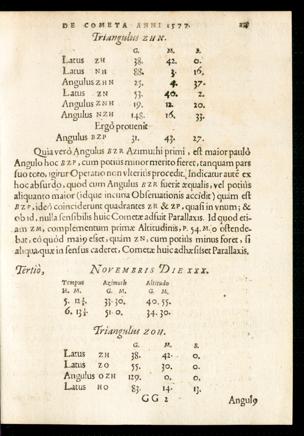 DE COMETA ANNI 1577.
Triangulus ZHN.
G. M. S.
Latus ZH 38. 42. 0.
Latus NH 88. 3. 16.
Angulus ZHN 25. 4. 37.
Latus ZN 53. 40. 2.
Angulus ZNH 19. 12. 20.
Angulus NZH 148. 16. 33.
Ergò prouenit
Angulus BZP 31. 43. 27.
Quia verò Angulus BZR Azimuthi primi, est maior paulò
Angulo hoc BZP, cum potius minor meritò fieret, tanquam pars
suo toto, igitur Operatio non vlterius procedit. Indicatur autē ex
hoc absurdo, quod cum Angulus BZR fuerit æqualis, vel potius
aliquanto maior (idque incuria Obseruationis accidit) quàm est
BZP, ideò coinciderunt quadrantes ZR & ZP, quasi in vnum; &
ob id, nulla sensibilis huic Cometæ adsuit Parallaxis. Id quod eti-
am ZM, complementum primæ Altitudinis, P. 54. M. 0 ostende-
bat, eò quòd maior esset, quàm ZN, cum potius minus foret, si
aliqua quæ in sensus caderet, Cometæ huic adhæsisset Parallaxis.
Tertiò, NOVEMBRIS DIE XXX.
Tempus Azimuth Altitudo
H. M. G. M. G. M.
5. 12½. 33. 30. 40. 55.
6. 13½. 51. 0. 34. 30.
Triangulus ZOH.
G. M. S.
Latus ZH 38. 42. 0.
Latus ZO 55. 30. 0.
Angulus OZH 129. 0. 0.
Latus HO 83. 14. 13.
GG 2 Angulꝰ